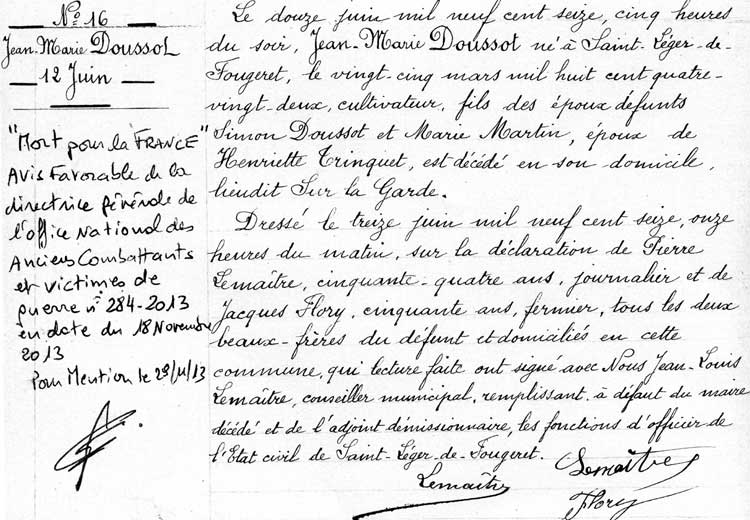 N° 16
Jean-Marie Doussot
12 Juin
"Mort pour la FRANCE"
Avis Favorable de la
directrice générale de
l'office National des
Anciens Combattants
et victimes de
guerre n° 284-2013
en date du 18 Novembre
2013
Pour Mention le 29/11/13
Le douze juin mil neuf cent seize, cinq heures
du soir, Jean-Marie Doussot né à Saint-Léger-de-
Fougeret, le vingt-cinq mars mil huit cent quatre-
vingt-deux, cultivateur, fils des époux défunts
Simon Doussot et Marie Martin, époux de
Henriette Trinquet, est décédé en son domicile,
lieudit Sur la Garde.
Dressé le treize juin mil neuf cent seize, onze
heures du matin, sur la déclaration de Pierre
Lemaître, cinquante-quatre ans, journalier et de
Jacques Flory, cinquante ans, fermier, tous les deux
beaux-frères du défunt et domiciliés en cette
commune, qui lecture faite ont signé avec Nous Jean-Louis
Lemaître, conseiller municipal, remplissant, à défaut du maire
décédé et de l'adjoint démissionnaire, les fonctions d'officier de
l'Etat civil de Saint-Léger-de-Fougeret.
Lemaître
Lemaître
Flory